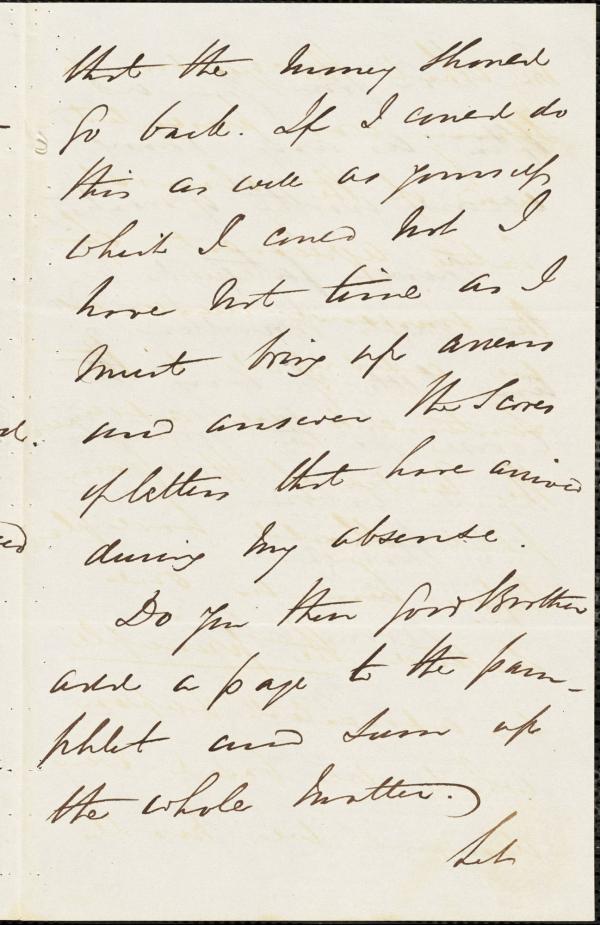 that the money should
go back. If I could do
this as well as yourself
which I could not I
have not time as I
must bring up arrears
and answer the scores
of letters that have arrived
during my absense.
Do you then good Brother
add a page to the pam-
phlet and sum up
the whole matter.
Let